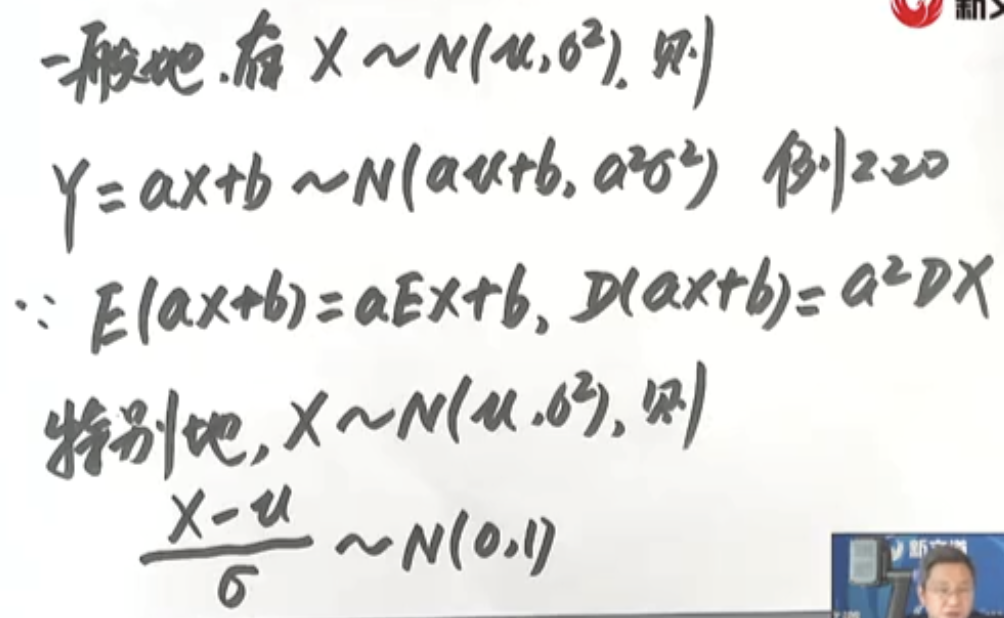 新文
一般地,有 X~N(μ,σ²), 则
Y=aX+b ~N(aμ+b, a²σ²) 例2.20
∵ E(aX+b)=aEX+b, D(aX+b)=a²DX
特别地, X~N(μ,σ²), 则
X-μ
σ
~N(0,1)
新文道